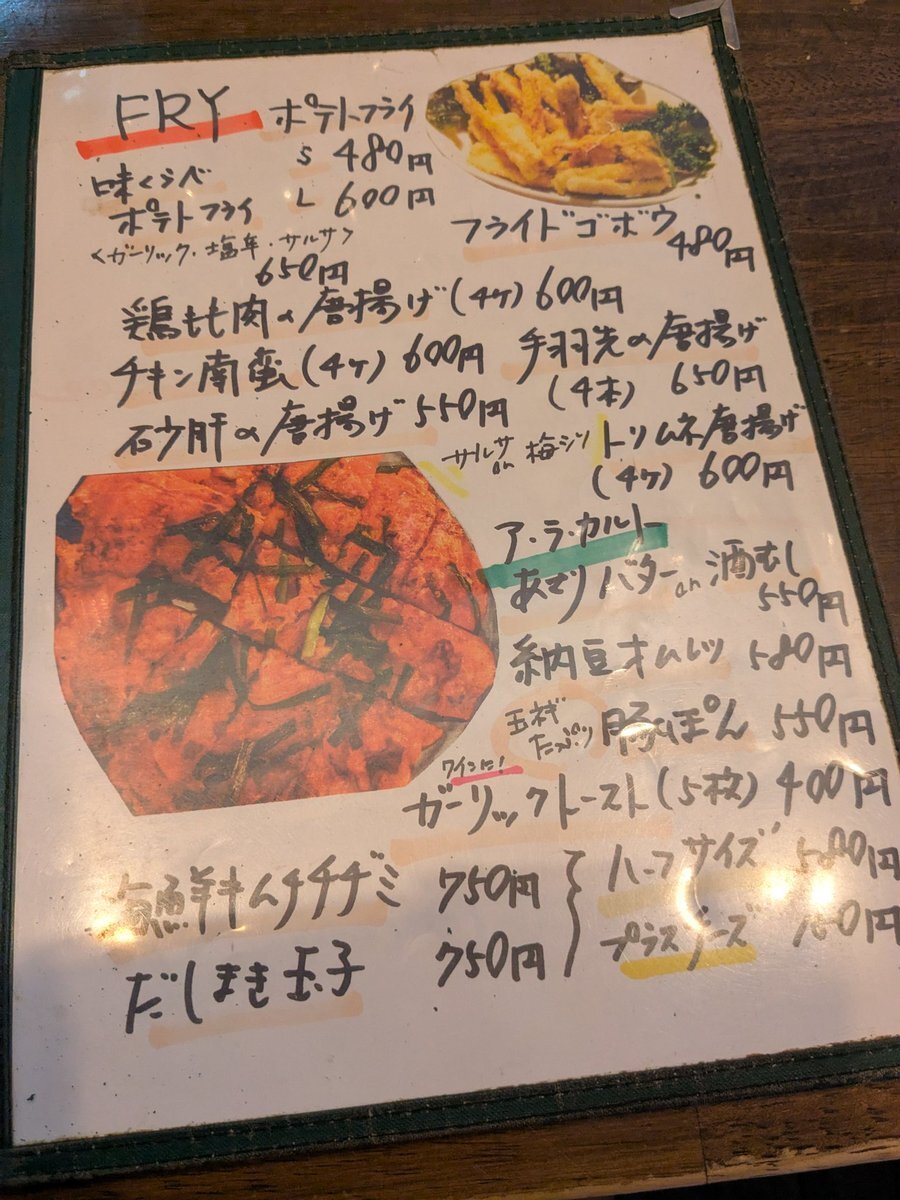 FRY
ポテトフライ
S 480円
L 600円
味くらべ
ポテトフライ
<ガーリック・塩・サルサ>
650円
フライドゴボウ
480円
鶏もも肉の唐揚げ(4ケ) 600円
チキン南蛮(4ケ) 600円
手羽先の唐揚げ
(4本) 650円
砂肝の唐揚げ 550円
サルサ or 梅ジソ トリムネ唐揚げ
(4ケ) 600円
ア・ラ・カルト
あさりバター or 酒むし
550円
納豆オムレツ 580円
玉ネギ
たっぷり 豚しゃぽん 550円
ワインに!
ガーリックトースト(5枚) 400円
海鮮キムチチヂミ 750円
だしまき玉子 750円
ハーフサイズ 580円
プラスチーズ